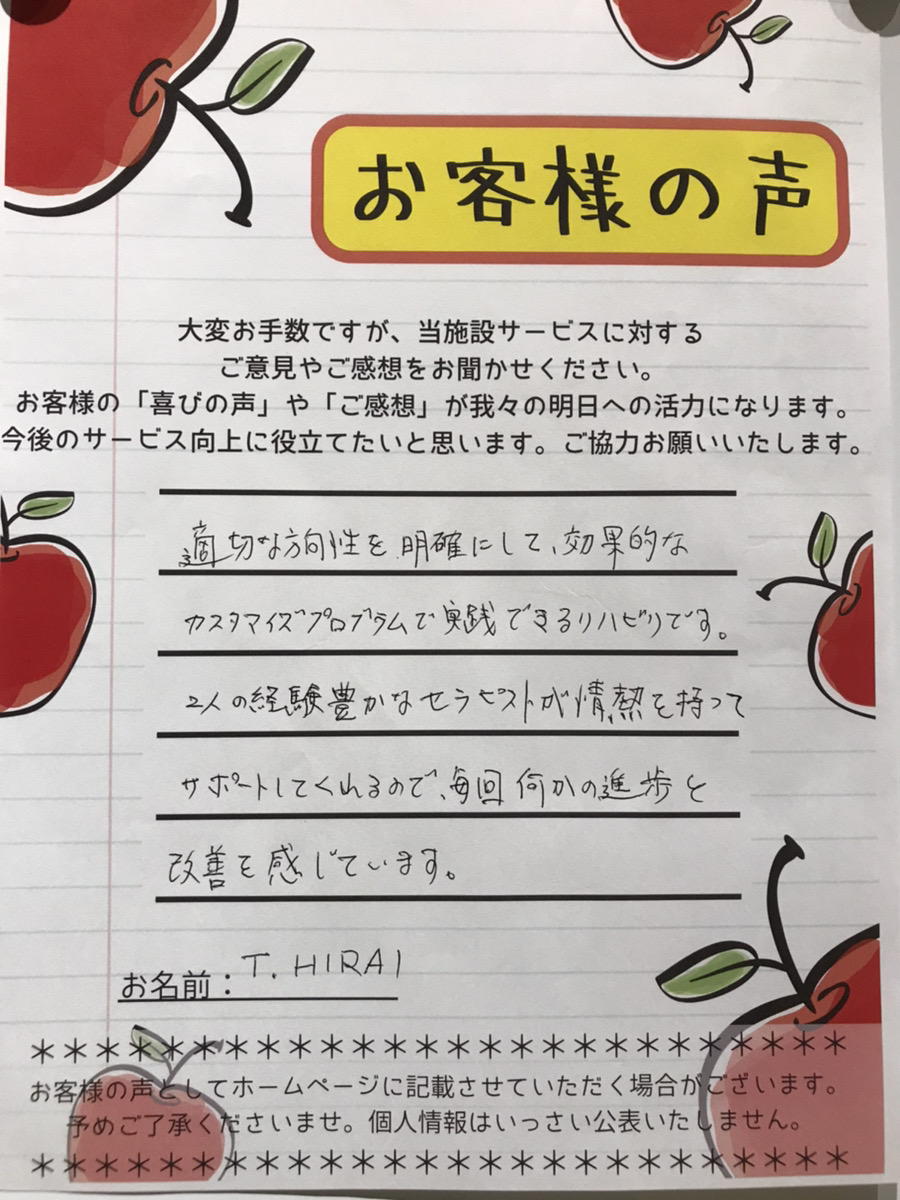 お客様の声
大変お手数ですが、当施設サービスに対する
ご意見やご感想をお聞かせください。
お客様の「喜びの声」や「ご感想」が我々の明日への活力になります。
今後のサービス向上に役立てたいと思います。ご協力お願いいたします。
適切な方向性を明確にして、効果的な
カスタマイズプログラムで実践できるリハビリです。
2人の経験豊かなセラピストが情熱を持って
サポートしてくれるので、毎回何かの進歩と
改善を感じています。
お名前：T. HIRAI
＊＊＊＊＊＊＊＊＊＊＊＊＊＊＊＊＊＊＊＊＊＊＊＊＊
お客様の声としてホームページに記載させていただく場合がございます。
予めご了承くださいませ。個人情報はいっさい公表いたしません。
＊＊＊＊＊＊＊＊＊＊＊＊＊＊＊＊＊＊＊＊＊＊＊＊＊